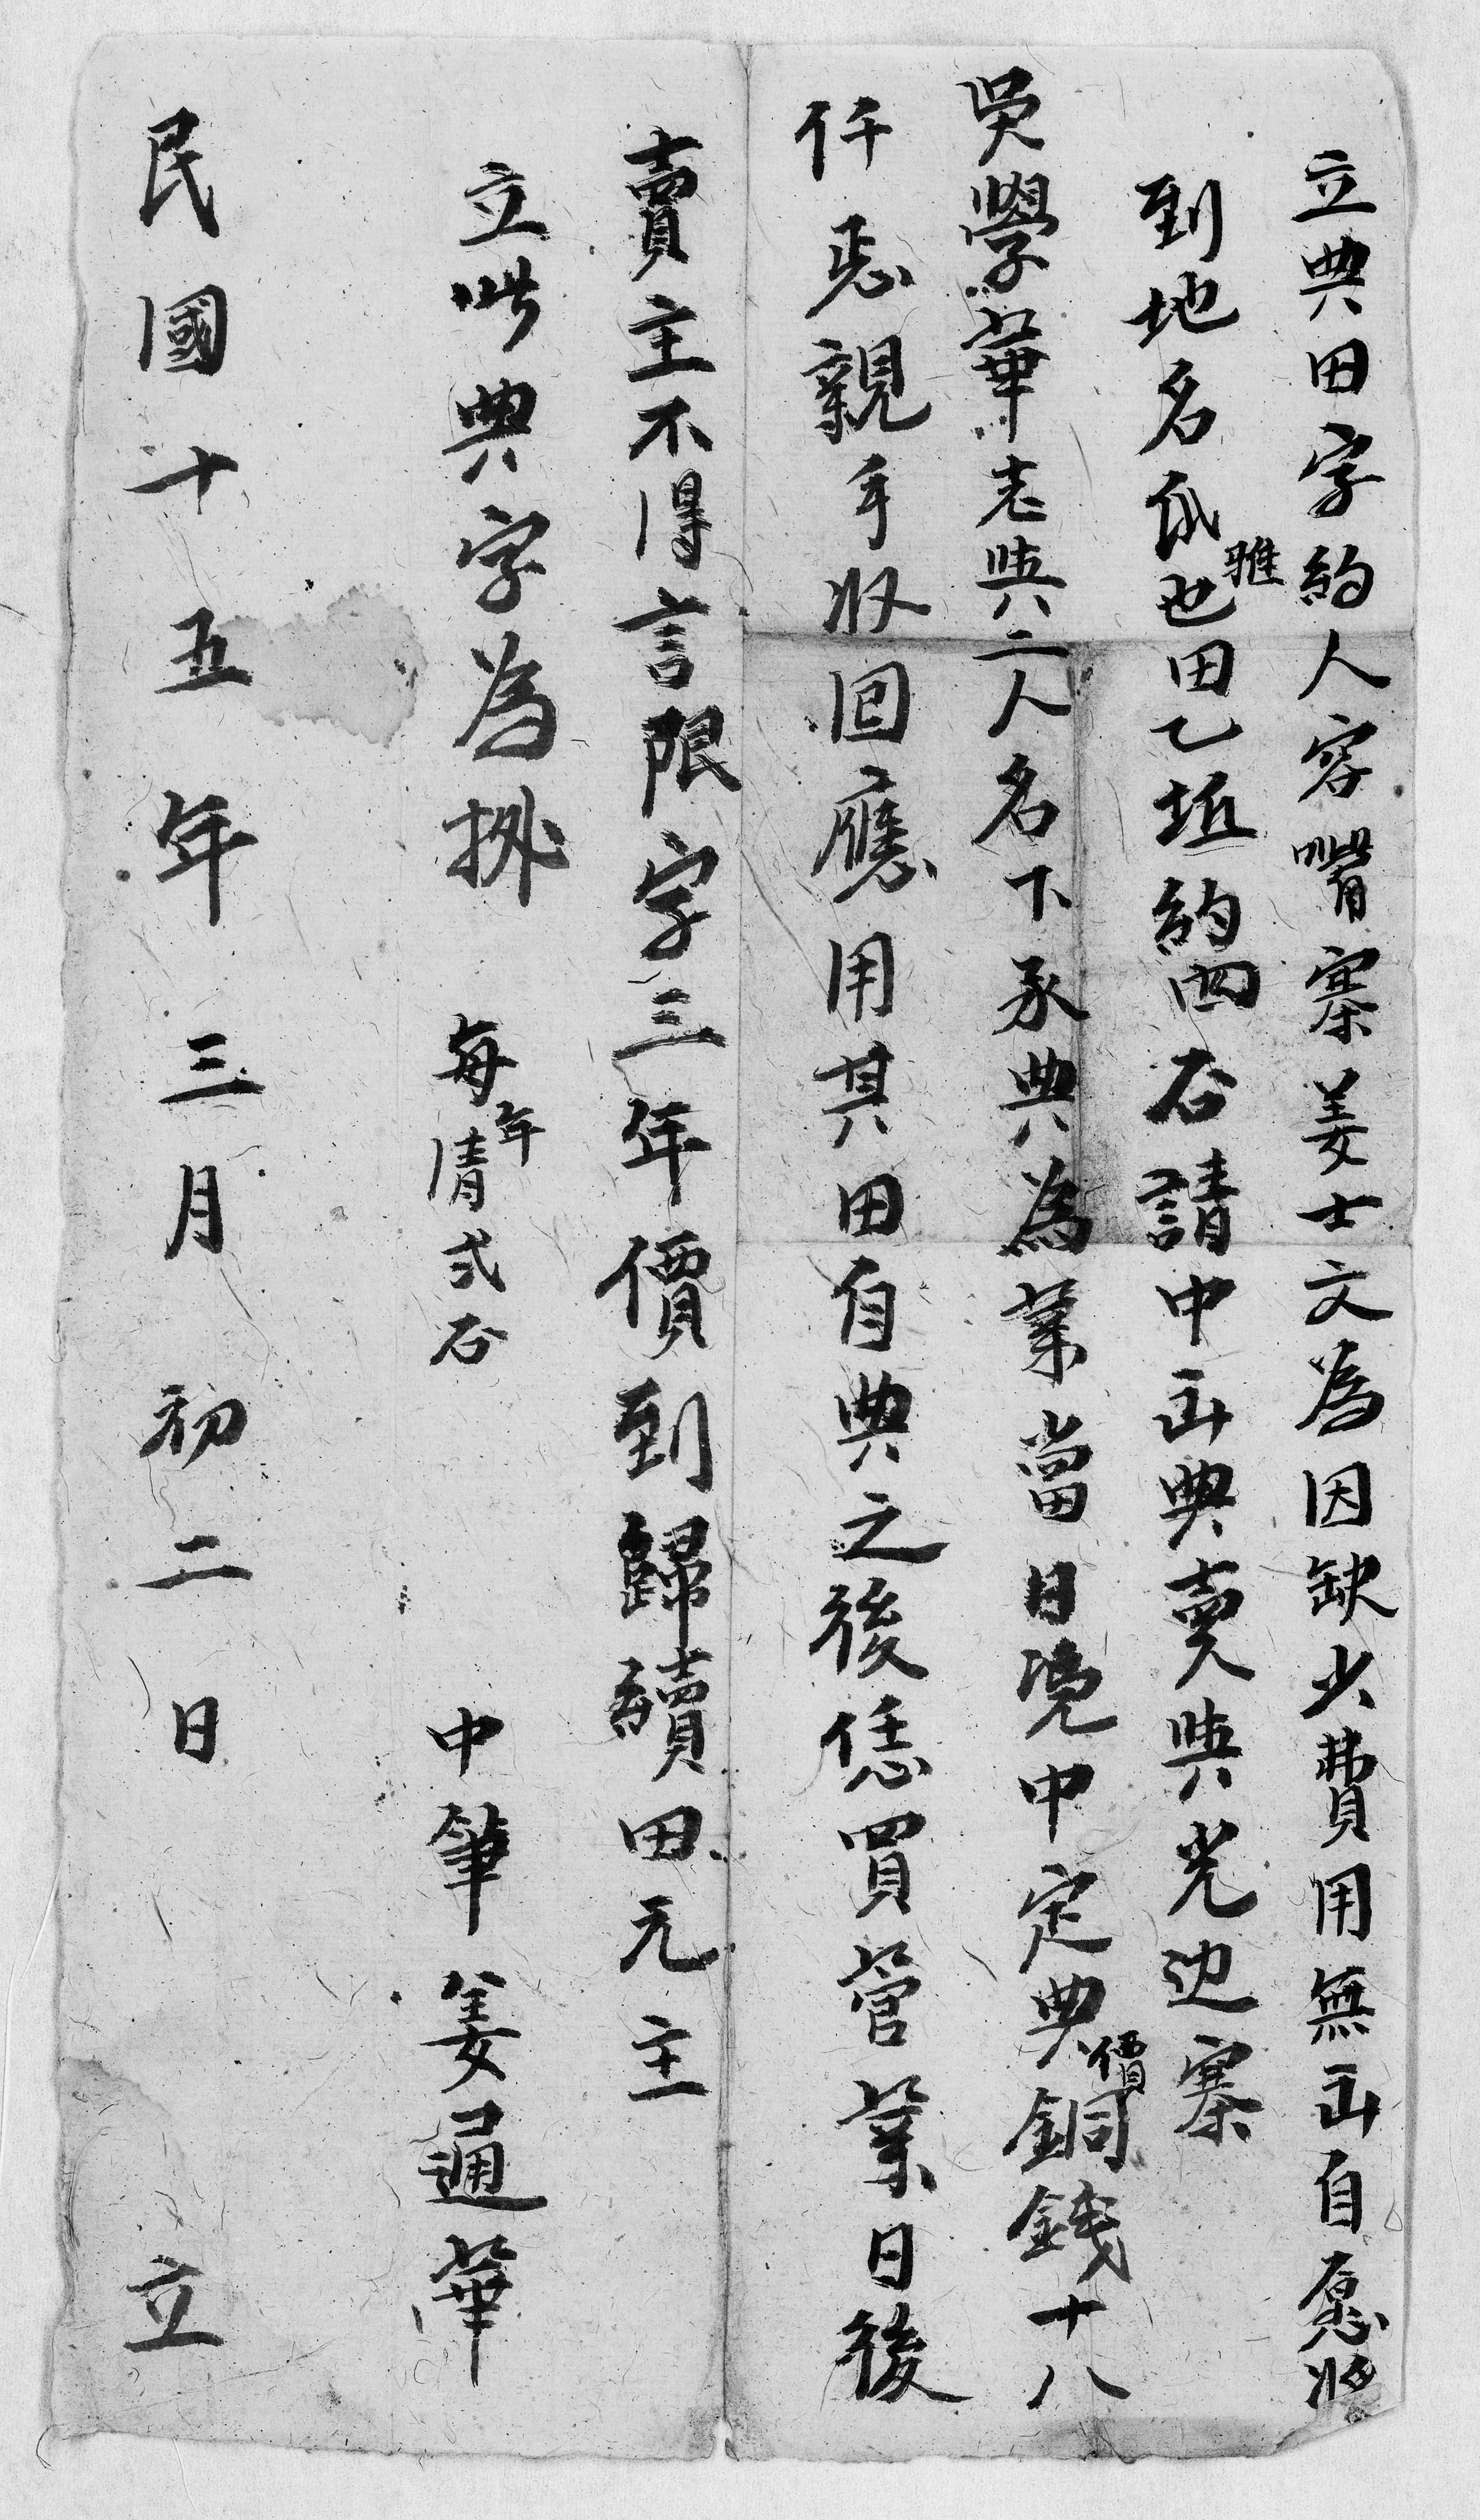 立典田字約人容嘴寨姜士文為因缺少費用無出自愿將
到地名皎也雅田乙坵約四石請中出典賣與党边寨
吳學華老與二人名下承典為業當日凴中定典價銅錢十八
仟㤙親手収回應用其田自典之後恁買管業日後
賣主不得言限字三年價到歸續田元主
立此典字為㨿 每年清弍石 中筆姜通華
民國十五年三月初二日 立